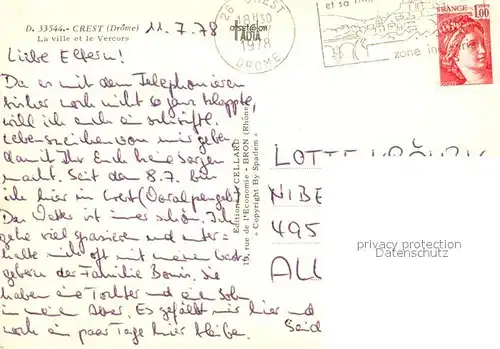 D. 33544.- CREST (Drôme)
La ville et le Vercors
11.7.78
Liebe Eltern!
Da es mit dem Telephonieren
sicher noch nicht so ganz klappte,
will ich euch ein schriftl.
Lebenszeichen von mir geben
damit Ihr Euch keine Sorgen
macht. Seit dem 8.7. bin
ich hier in Crest (Voralpengebiet)
Das Wetter ist immer schön. Ich
gehe viel spazieren und unter-
halte mich oft mit meinen Gast-
gebern der Familie Bonin. Sie
haben eine Tochter und ein Sohn
in mein Alter. Es gefällt mir hier und
noch ein paar Tage hier bleiben.
Seid
Editions CELLARD
19, rue de l'Economie - BRON (Rhône)
« Copyright By Spadem »
26 CREST
18H30
1978
DROME
et sa
zone in
FRANCE
1,00
LOTTE
NIBE
495
ALL
privacy protection
Datenschutz